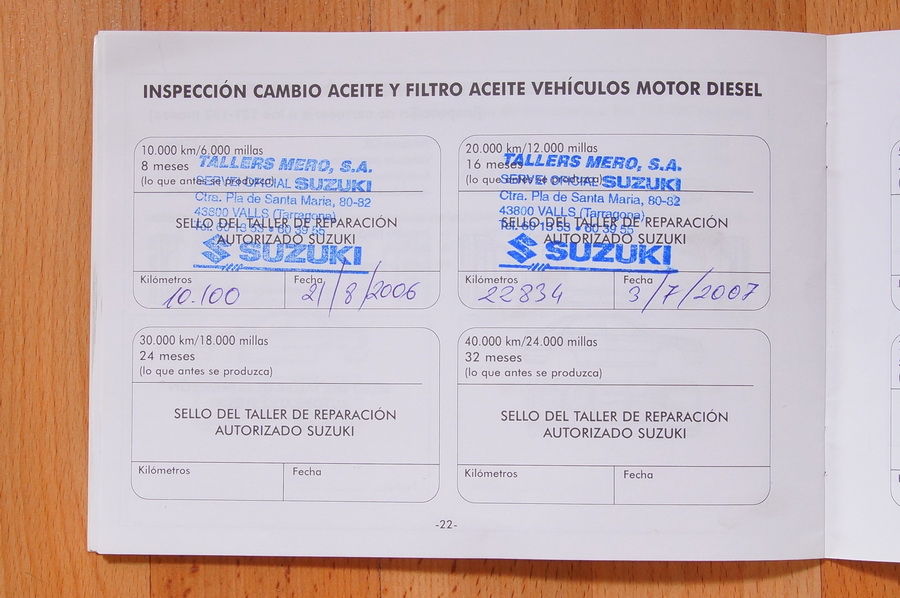 INSPECCIÓN CAMBIO ACEITE Y FILTRO ACEITE VEHÍCULOS MOTOR DIESEL
10.000 km/6.000 millas
8 meses
(lo que antes se produzca)
TALLERS MERO, S.A.
SERVEI OFICIAL SUZUKI
Ctra. Pla de Santa Maria, 80-82
43800 VALLS (Tarragona)
SELLO DEL TALLER DE REPARACIÓN
AUTORIZADO SUZUKI
SUZUKI
Kilómetros
10.100
Fecha
21/8/2006
20.000 km/12.000 millas
16 meses
(lo que antes se produzca)
TALLERS MERO, S.A.
SERVEI OFICIAL SUZUKI
Ctra. Pla de Santa Maria, 80-82
43800 VALLS (Tarragona)
SELLO DEL TALLER DE REPARACIÓN
AUTORIZADO SUZUKI
SUZUKI
Kilómetros
22834
Fecha
3/7/2007
30.000 km/18.000 millas
24 meses
(lo que antes se produzca)
SELLO DEL TALLER DE REPARACIÓN
AUTORIZADO SUZUKI
Kilómetros
Fecha
40.000 km/24.000 millas
32 meses
(lo que antes se produzca)
SELLO DEL TALLER DE REPARACIÓN
AUTORIZADO SUZUKI
Kilómetros
Fecha
-22-